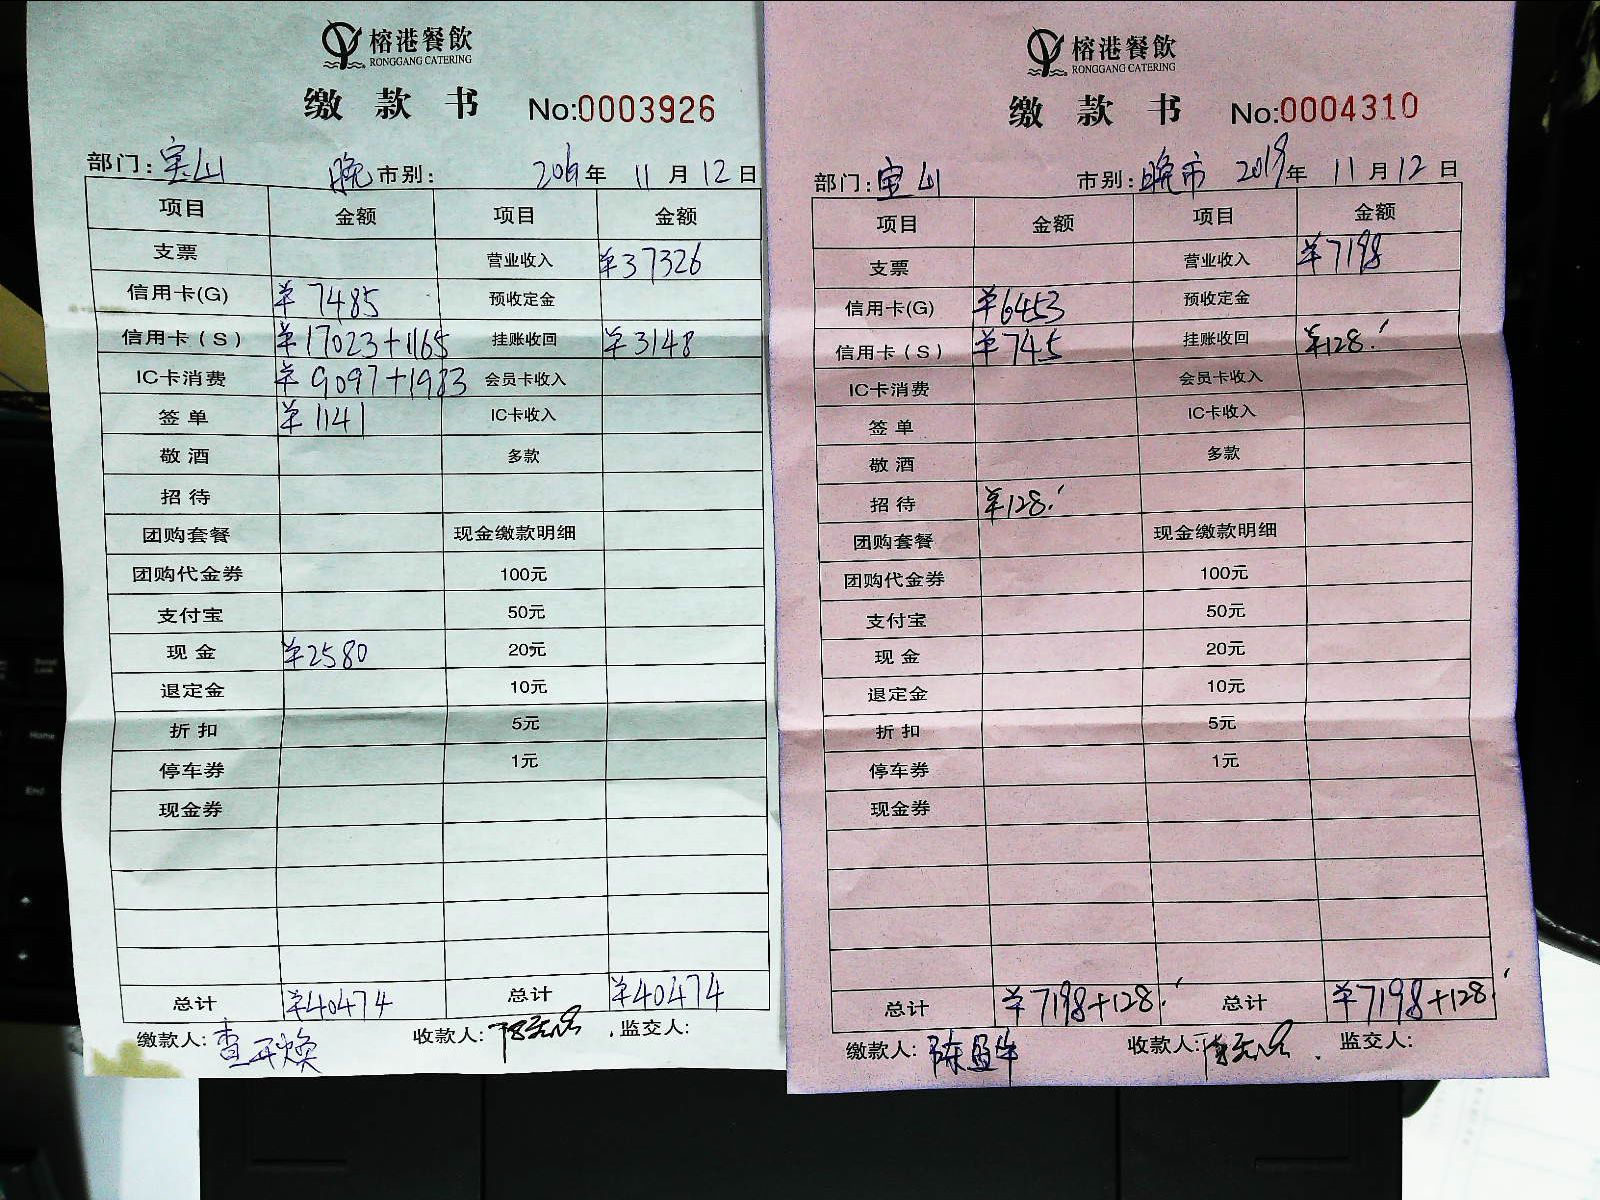 榕港餐飲
RONGGANG CATERING
缴款书 No:0003926
部门: 宝山 晚市别: 2019年 11月12日
项目 金额 项目 金额
支票 营业收入 ¥37326
信用卡(G) ¥7485 预收定金
信用卡(S) ¥17023+1165 挂账收回 ¥3148
IC卡消费 ¥9097+1983 会员卡收入
签单 ¥1141 IC卡收入
敬酒 多款
招待
团购套餐 现金缴款明细
团购代金券 100元
支付宝 50元
现金 ¥2580 20元
退定金 10元
折扣 5元
停车券 1元
现金券
总计 ¥40474 总计 ¥40474
缴款人: 收款人: 监交人:
榕港餐飲
RONGGANG CATERING
缴款书 No:0004310
部门: 宝山 市别: 晚市 2019年 11月12日
项目 金额 项目 金额
支票 营业收入 ¥7198
信用卡(G) ¥6453 预收定金
信用卡(S) ¥745 挂账收回 ¥128.
IC卡消费 会员卡收入
签单 IC卡收入
敬酒 多款
招待 ¥128.
团购套餐 现金缴款明细
团购代金券 100元
支付宝 50元
现金 20元
退定金 10元
折扣 5元
停车券 1元
现金券
总计 ¥7198+128. 总计 ¥7198+128.
缴款人: 收款人: 监交人: